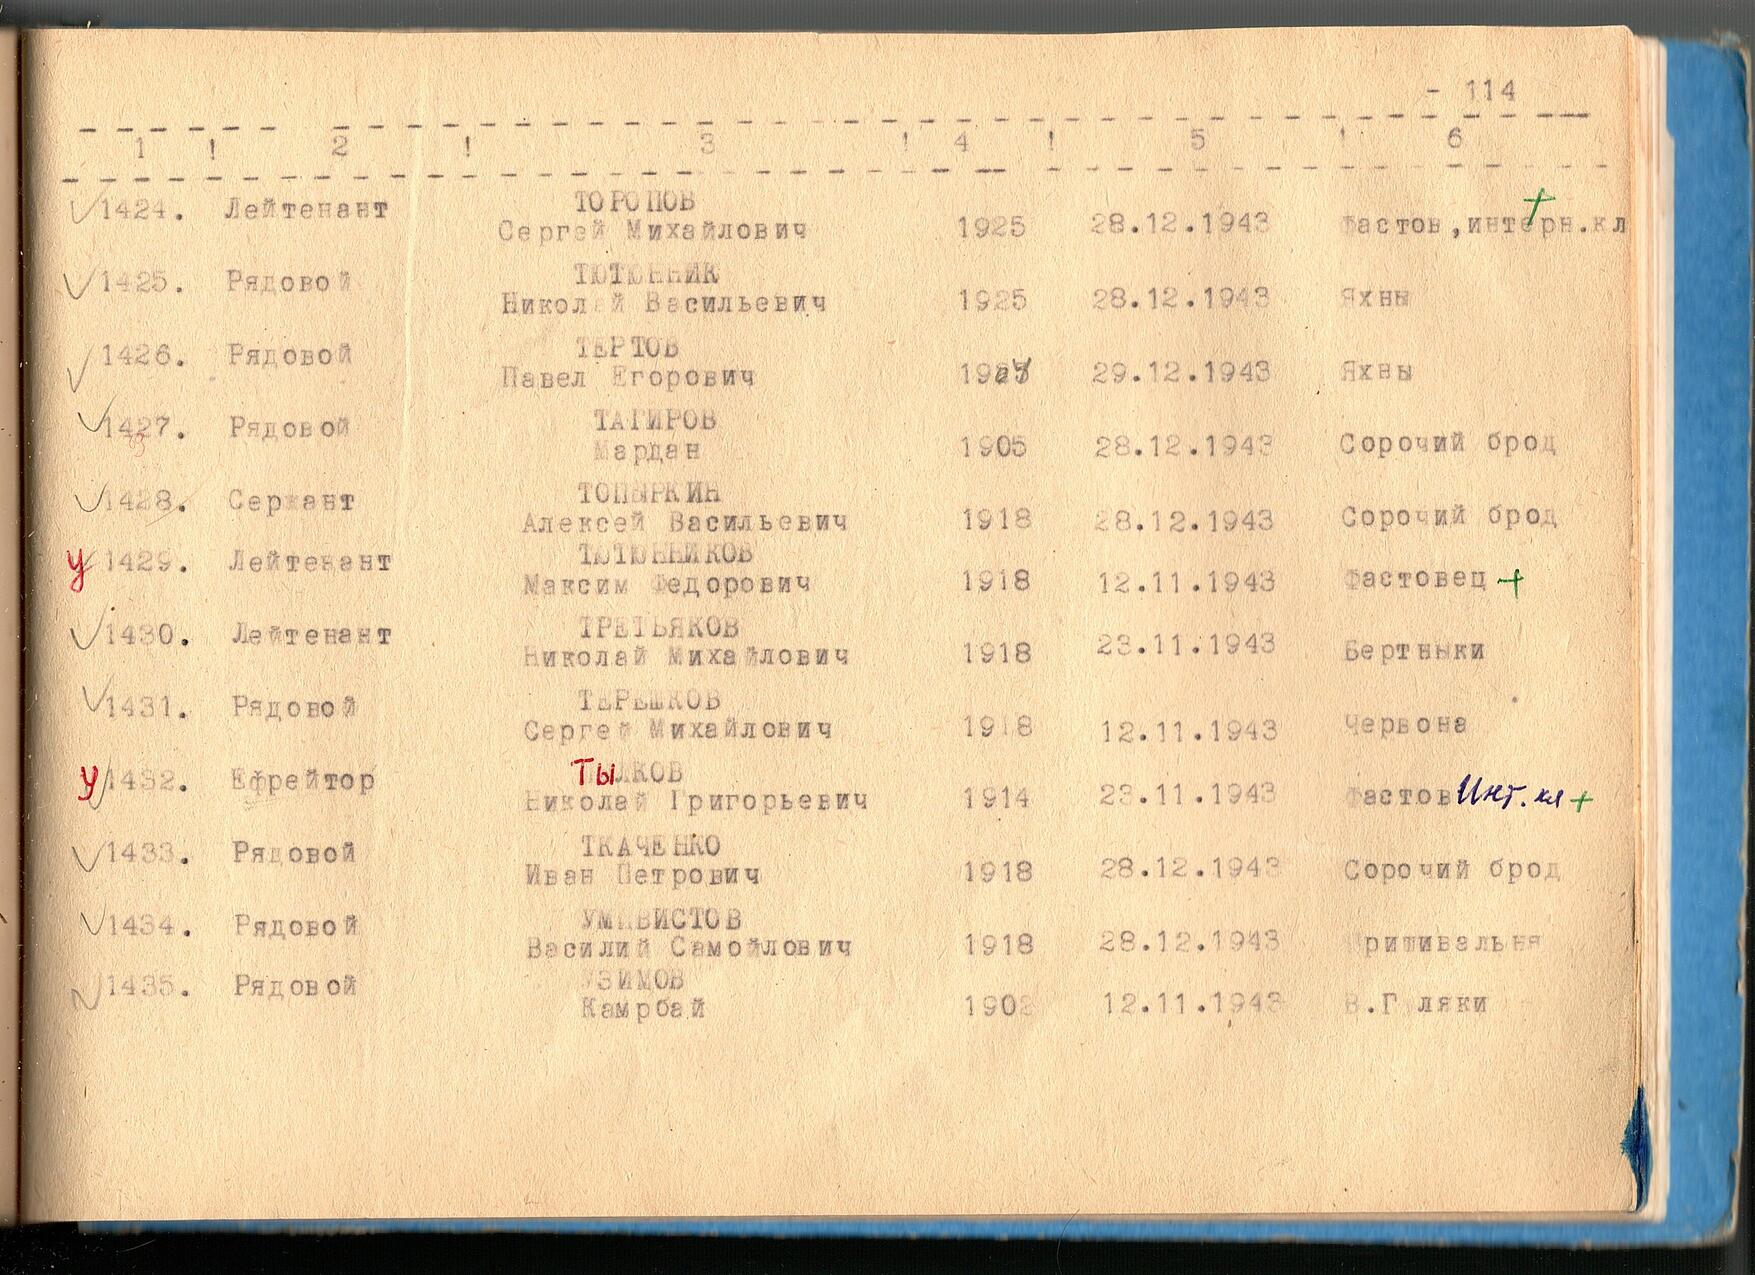 - 114
1 ! 2 ! 3 ! 4 ! 5 ! 6
1424. Лейтенант ТОРОПОВ
Сергей Михайлович 1925 28.12.1943 Фастов,интерн.кл
1425. Рядовой ТЮТЮННИК
Николай Васильевич 1925 28.12.1943 Яхны
1426. Рядовой ТЕРТОВ
Павел Егорович 29.12.1943 Яхны
1427. Рядовой ТАГИРОВ
Мардан 1905 28.12.1943 Сорочий брод
1428. Сержант ТОПЫРКИН
Алексей Васильевич 1918 28.12.1943 Сорочий брод
у 1429. Лейтенант ТЮТЮННИКОВ
Максим Федорович 1918 12.11.1943 Фастовец +
1430. Лейтенант ТРЕТЬЯКОВ
Николай Михайлович 1918 23.11.1943 Бертныки
1431. Рядовой ТЕРЕШКОВ
Сергей Михайлович 1918 12.11.1943 Червона
у 1432. Ефрейтор ТЫЛКОВ
Николай Григорьевич 1914 23.11.1943 Фастов Инт. кл +
1433. Рядовой ТКАЧЕНКО
Иван Петрович 1918 28.12.1943 Сорочий брод
1434. Рядовой
Василий Самойлович 1918 28.12.1943 Пришивальня
1435. Рядовой УЗИМОВ
Камрбай 1903 12.11.1943 В.Г ляки